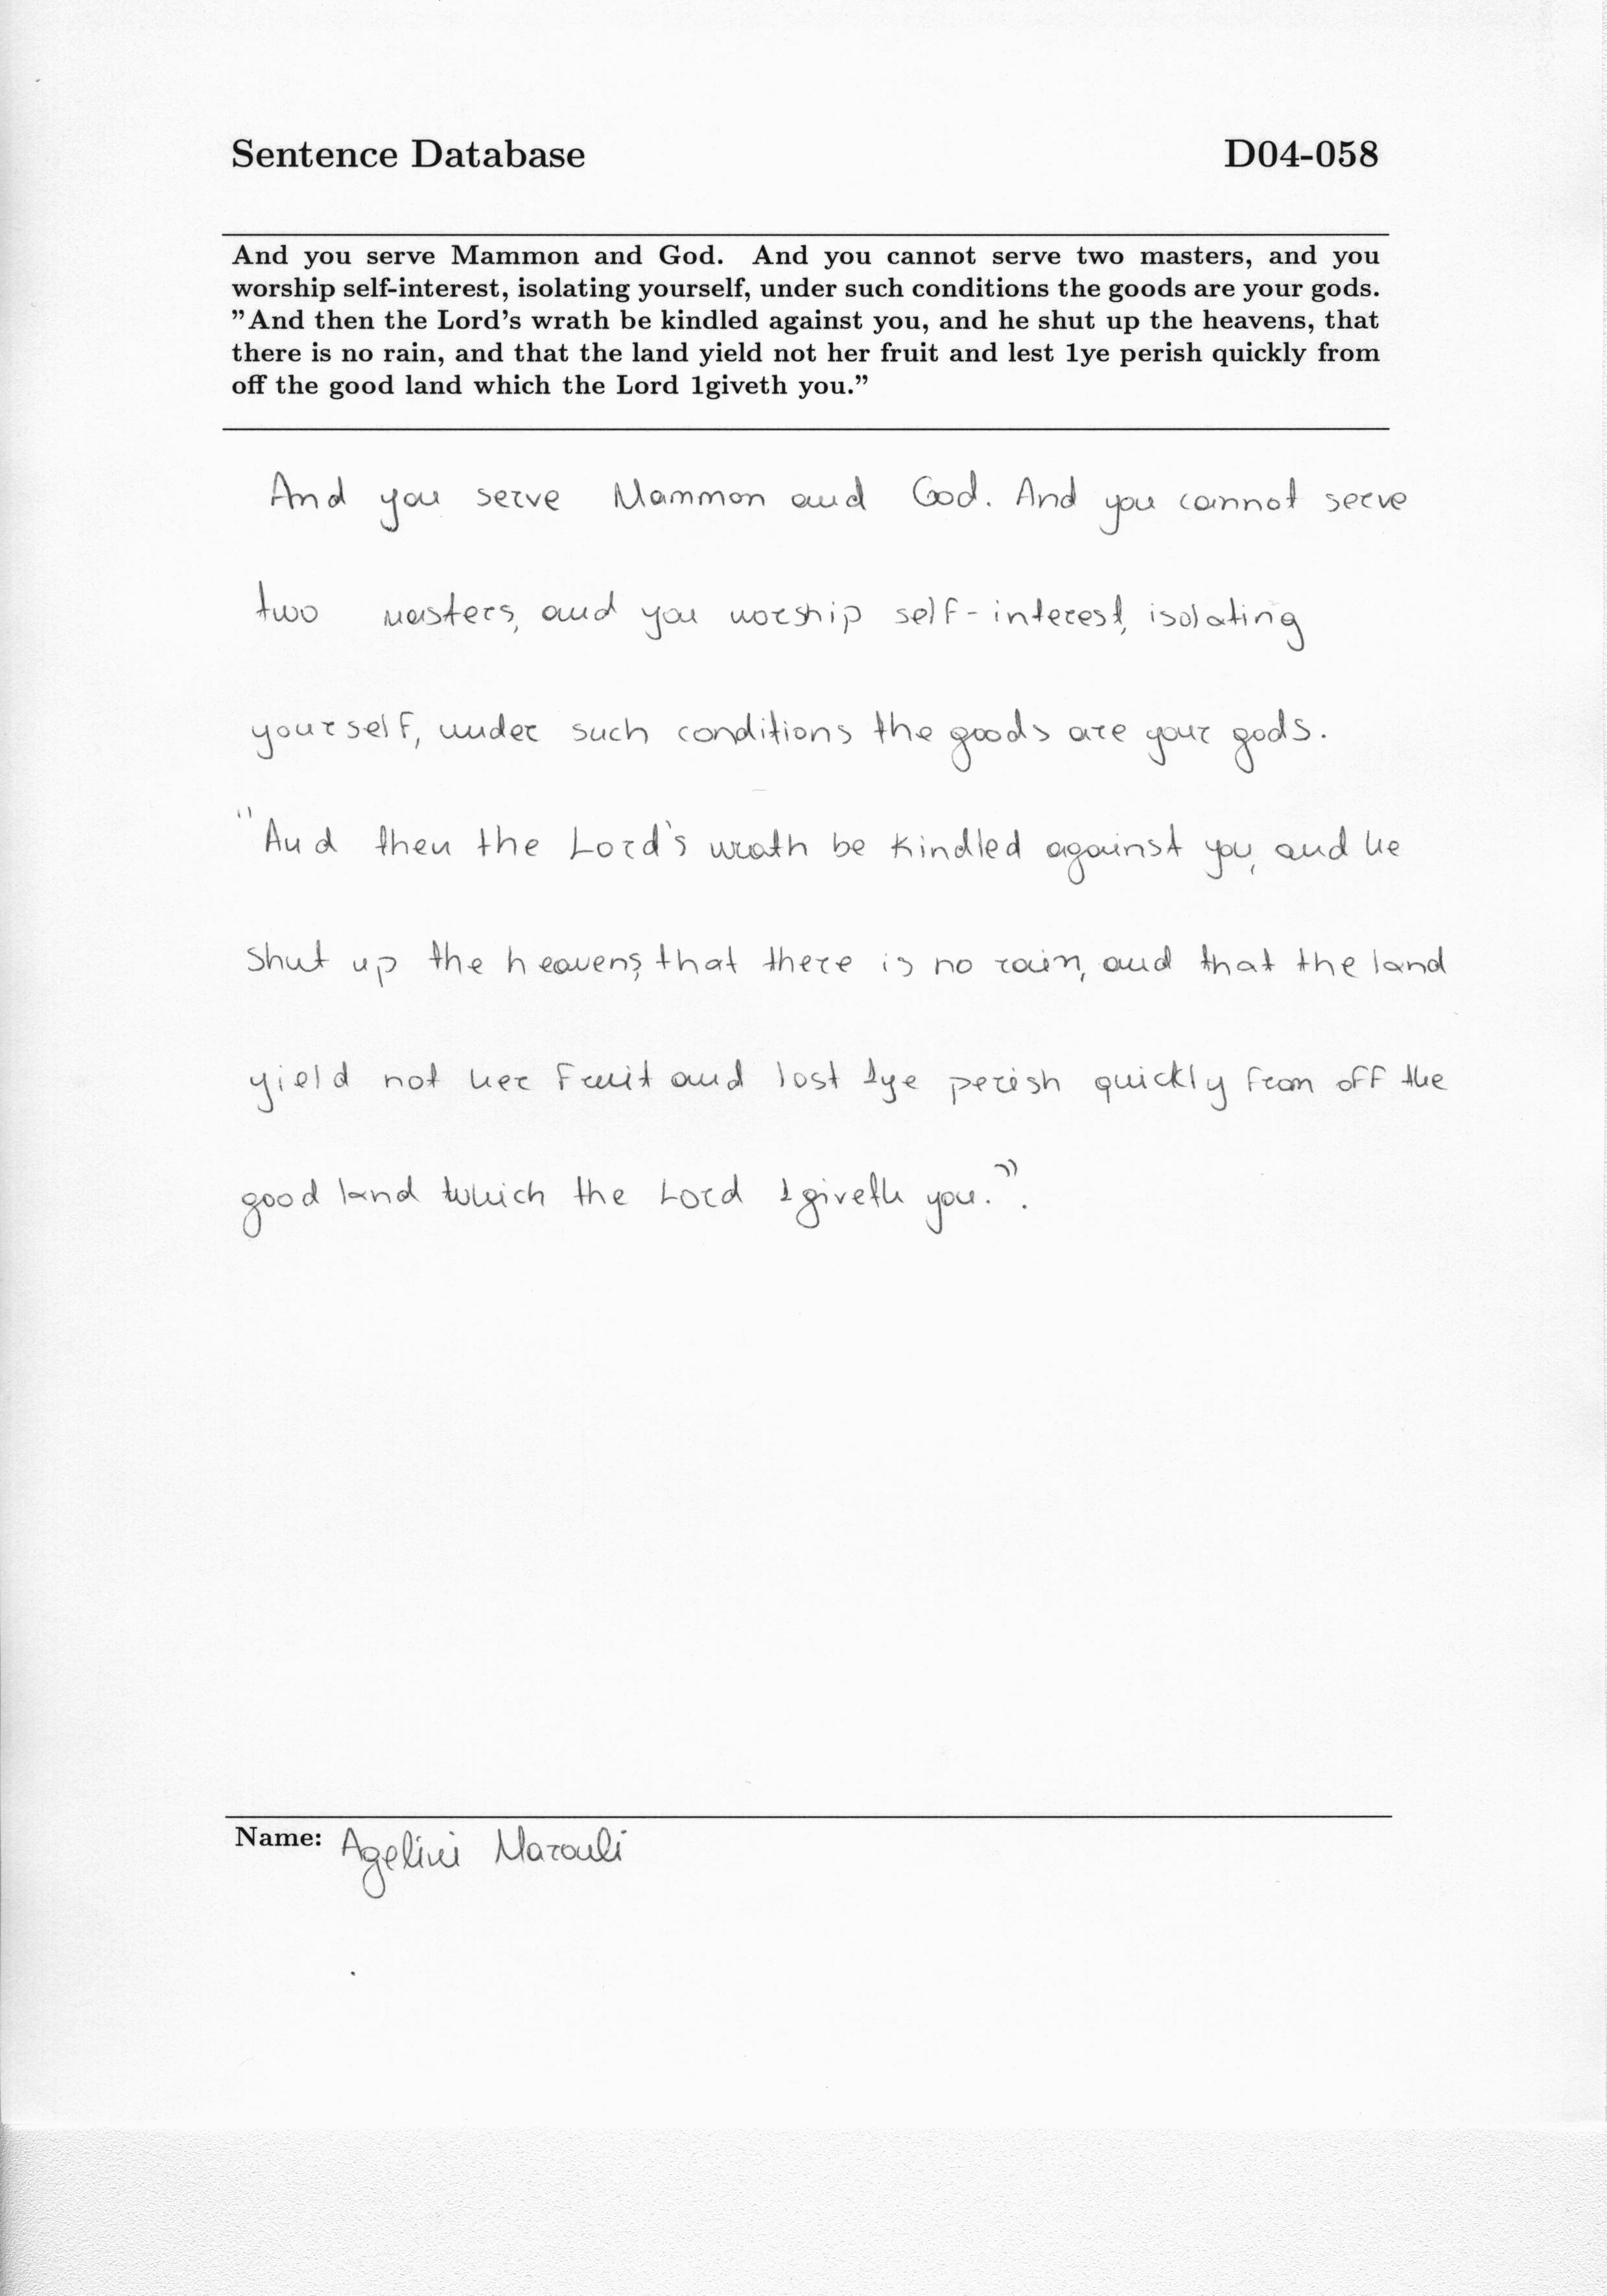 Sentence Database D04-058
And you serve Mammon and God. And you cannot serve two masters, and you
worship self-interest, isolating yourself, under such conditions the goods are your gods.
”And then the Lord’s wrath be kindled against you, and he shut up the heavens, that
there is no rain, and that the land yield not her fruit and lest 1ye perish quickly from
off the good land which the Lord 1giveth you.”
And you serve Mammon and God. And you cannot serve
two masters, and you worship self-interest, isolating
yourself, under such conditions the goods are your gods.
"And then the Lord's wrath be kindled against you, and he
shut up the heavens, that there is no rain, and that the land
yield not her fruit and lost 1ye perish quickly from off the
good land which the Lord 1giveth you.".
Name: Agelini Marouli